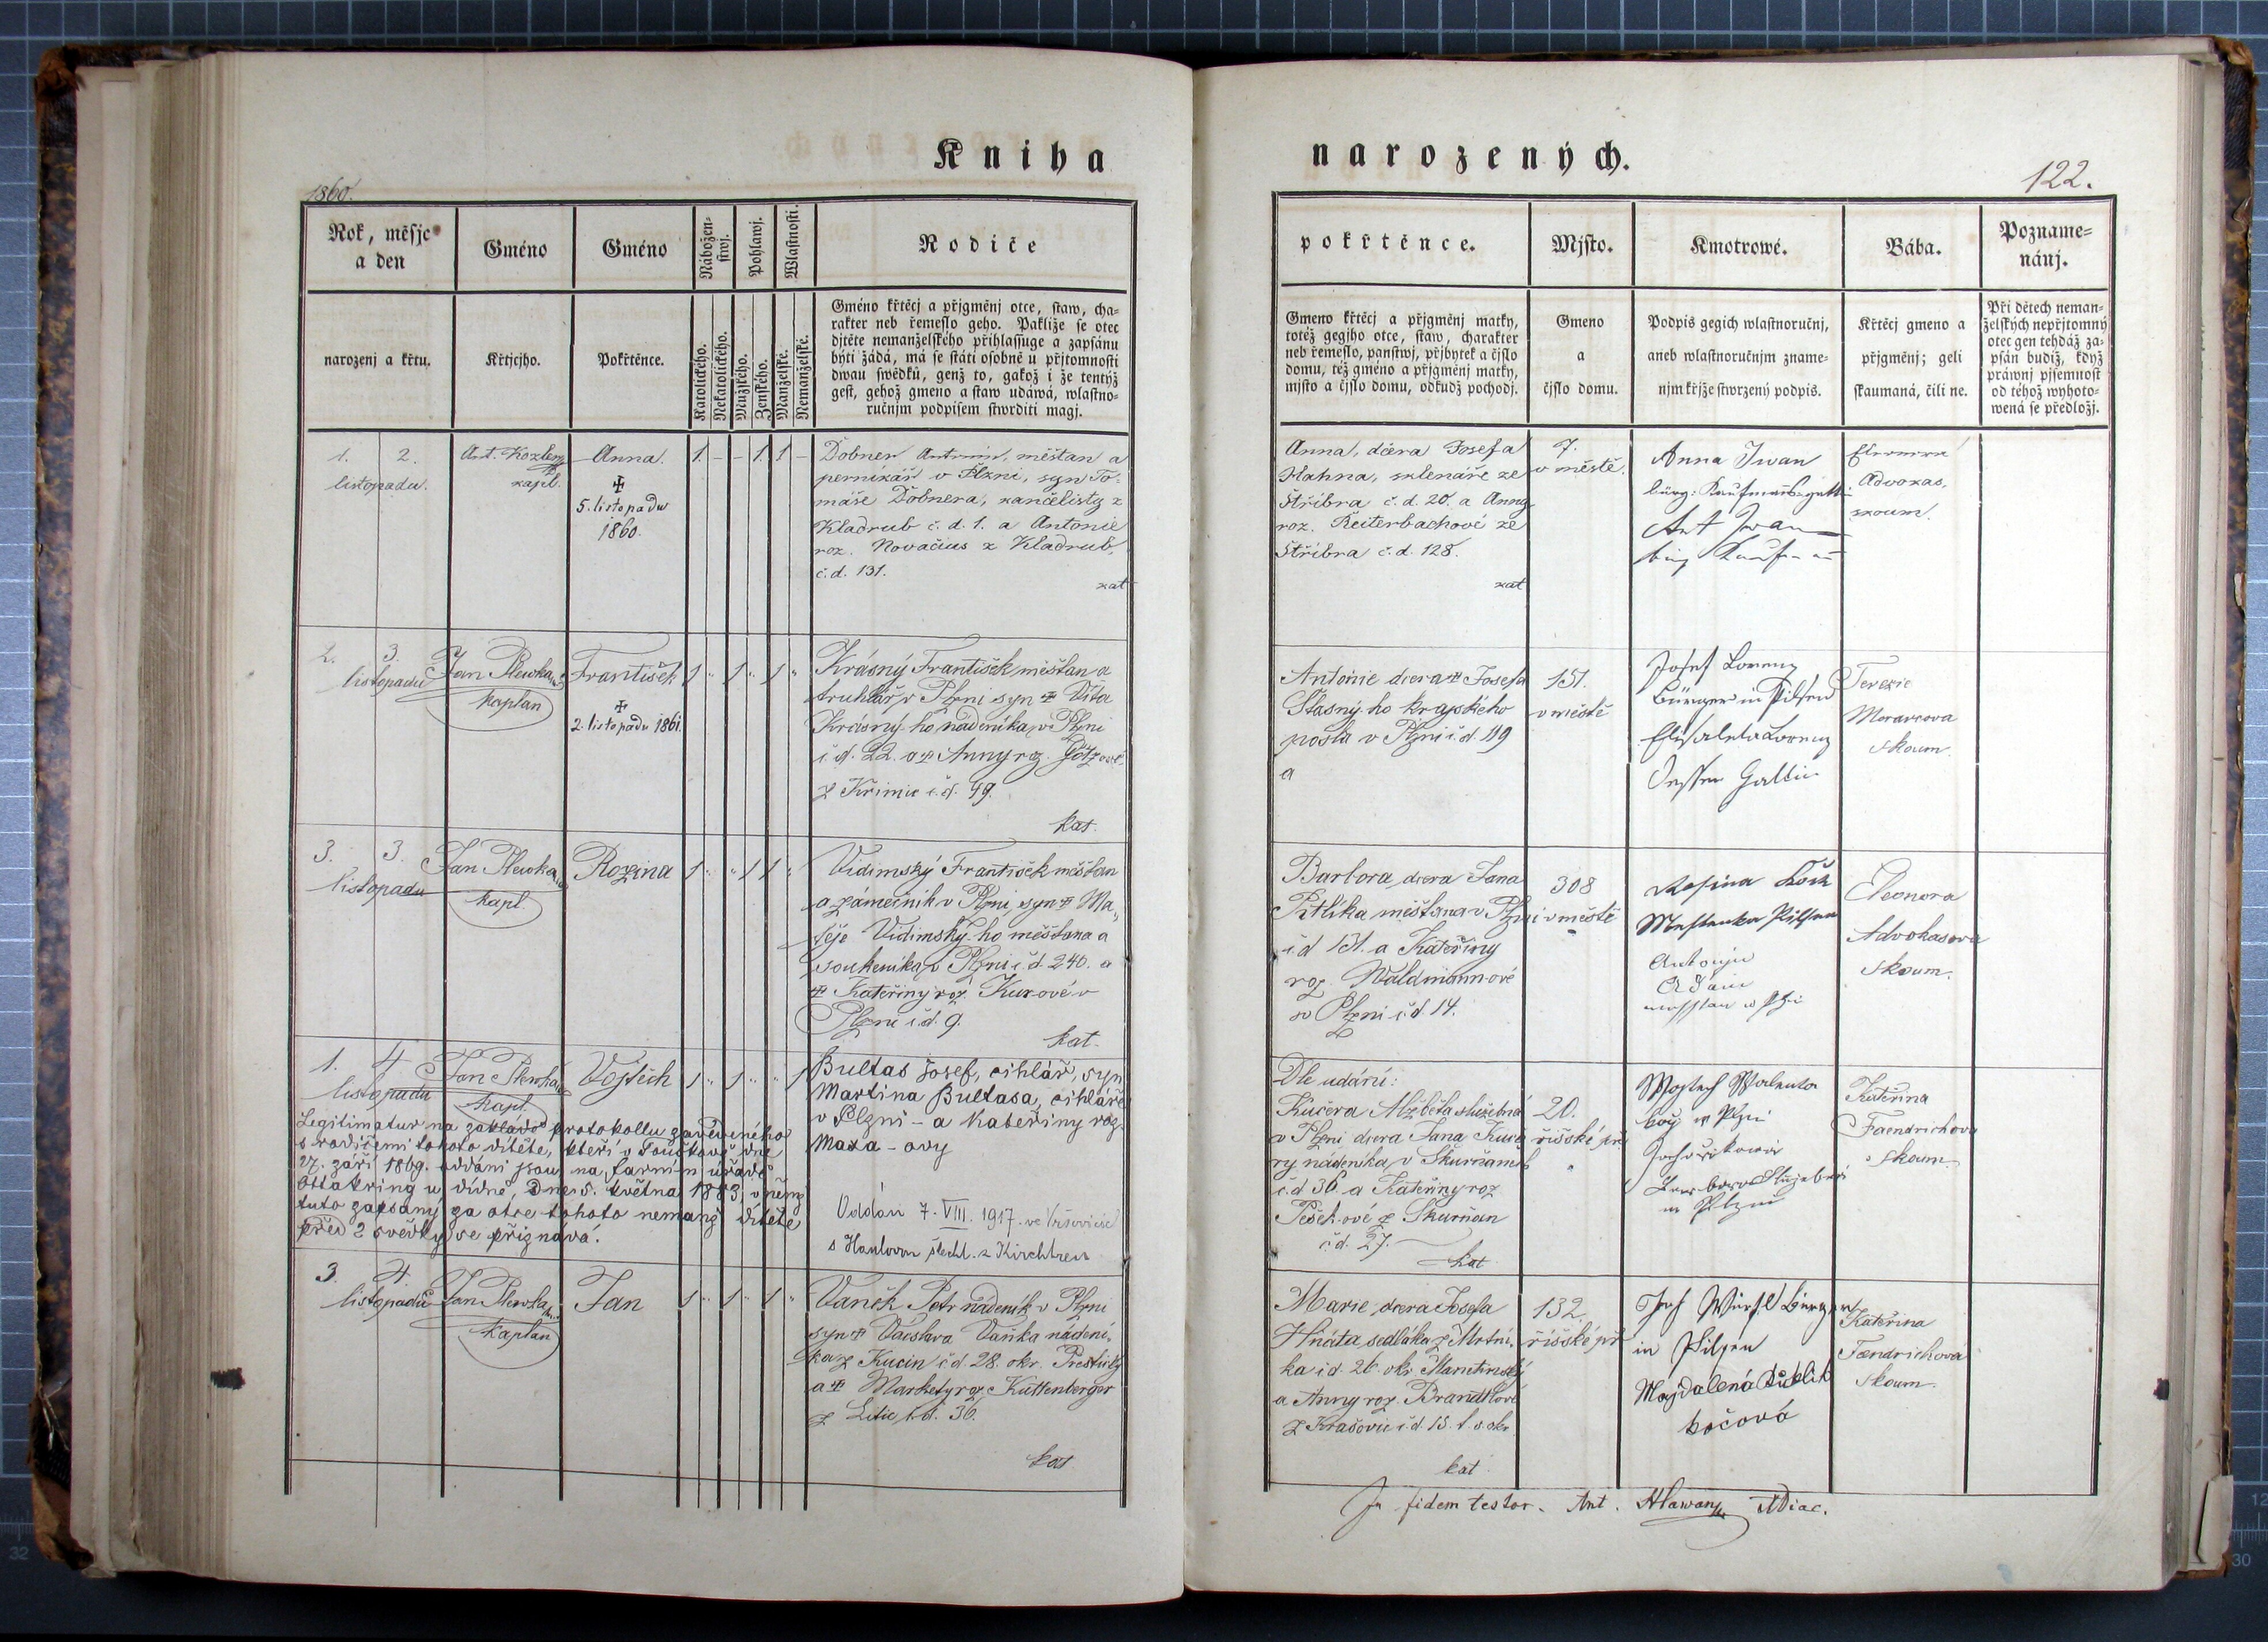 Kniha
narozených.
1860.
122.
Rok, měsjc
a den
Gméno
Gméno
Nábožen-
stwj.
Pohlawj.
Wlastnosti.
Rodiče
narozenj a křtu.
Křtjcjho.
Pokřtěnce.
Katolického.
Nekatolického.
Mužského.
Ženského.
Manželské.
Nemanželské.
Gméno křtěcj a přjgměnj otce, staw, cha-
rakter neb řemeslo geho. Pakliže se otec
djtěte nemanželského přihlassuge a zapsánu
býti žádá, má se státi osobně u přjtomnosti
dwau swědků, genž to, gakož i že tentýž
gest, gehož gmeno a staw udáwá, wlastno-
ručnjm podpisem stwrditi magj.
pokřtěnce.
Mjsto.
Kmotrowé.
Bába.
Pozname-
nánj.
Gmeno křtěcj a přjgměnj matky,
totéž gegjho otce, staw, charakter
neb řemeslo, panstwj, přjbytek a čjslo
domu, též gméno a přjgměnj matky,
mjsto a čjslo domu, odkudž pochodj.
Gmeno
a
čjslo domu.
Podpis gegich wlastnoručnj,
aneb wlastnoručnjm zname-
njm křjže stwrzený podpis.
Křtěcj gmeno a
přjgměnj; geli
skaumaná, čili ne.
Při dětech neman-
želských nepřjtomný
otec gen tehdáž za-
psán budiž, když
práwnj pjsemnost
od téhož wyhoto-
wená se předložj.
1. 2.
listopadu.
Ant. Kozler
kapl.
Anna.
✠
5. listopadu
1860.
1. – – 1. 1 –
Dobner Antonín, měštan a
pernikář v Plzni, syn To-
máše Dobnera, kancelisty z
Kladrub č. d. 1. a Antonie
roz. Novačius z Kladrub,
č. d. 131.
kat
Anna, dcera Josefa
Hahna, sklenáře ze
Stříbra č. d. 20. a Anny
roz. Reiterbachové ze
Stříbra č. d. 128.
kat
7.
v městě.
Anna Iwan
bürg: Kaufmanns-gatti
Ant Iwan
Advokas.
skoum.
2. 3.
listopadu
Jan Plewka
kaplan
František
✠
2. listopadu 1861.
1 " 1 " 1 "
Krásný František měšťan a
truhlář v Plzni syn ✠ Víta
Krásný-ho nádeníka v Plzni
č. d. 22. a ✠ Anny roz. Götzové
z Křimic č. d. 49.
kat.
Antonie dcera ✠ Josefa
Šťasný-ho krajského
posla v Plzni č. d. 119
a
151.
v městě
Josef Lorenz
Bürger in Pilsen
Elisabeta Lorenz
Dessen Gattin
Terezie
Moravcova
skoum.
3. 3.
listopadu
Jan Plewka
kapl.
Rozina
1 " " 1 1 "
Vidimský František měšťan
a zámečník v Plzni, syn ✠ Ma-
těje Vidimský-ho měšťana a
soukeníka v Plzni č. d. 240. a
✠ Kateřiny roz. Kurové v
Plzni č. d. 9.
kat.
Barbora, dcera Jana
Pitlíka měšťana v Plzni
č. d. 131. a Kateřiny
roz. Waldmann-ové
v Plzni č. d. 14.
308
v městě
Rosina
Antonjn
Eleonora
Advokasova
skoum.
1. 4
listopadu
Jan Plewka
kapl.
Vojtěch
1 " 1 " " 1
Bultas Josef, cihlář, syn
Martina Bultasa, cihláře
v Plzni – a Kateřiny roz.
Maxa-ovy
Legitimatur na základě protokollu zavedeného
s rodičemi tohoto dítěte, kteří v Touškově dne
27. září 1869. oddáni jsou na farním úřadě
Ottakring u Vídně, dne 5. května 1883, v němž
tuto zapsaný za otce tohoto nemanž dítěte
před 2 svědky se přiznává.
Oddán 7. VIII. 1917. ve Vršovicích
s Hanlovou šlecht. z Kirchtreu
Dle udání:
Kučera Alžběta služebná
v Plzni dcera Jana Kuče
ry nádeníka v Skurňanech
č. d. 36 a Kateřiny roz
Pešek-ové z Skurňan
č. d. 27.
kat
20.
řišské př
Wogtech Walenta
w Plzni
w Plzni
Kateřina
Faendrichova
skoum.
3. 4.
listopadu
Jan Plewka
kaplan
Jan
1 " 1 " 1 "
Vaněk Petr nádeník v Plzni
syn ✠ Václava Vaňka nádení-
ka z Kucin č. d. 28. okr. Přestický
a ✠ Markety roz. Kuttenberger
z Litic č. d. 36.
kat
Marie, dcera Josefa
Hnáta sedláka z Mrtní-
ka č. d. 26 okr. Manetinský
a Anny roz. Brandtlové
z Krašovic č. d. 15. t. s. okr.
kat
132.
řišské př
Josf Würfl Bürger
in Pilsen
Magdalená
kočová
Kateřina
Faendrichová
skoum.
In fidem testor. Ant. Hlawan